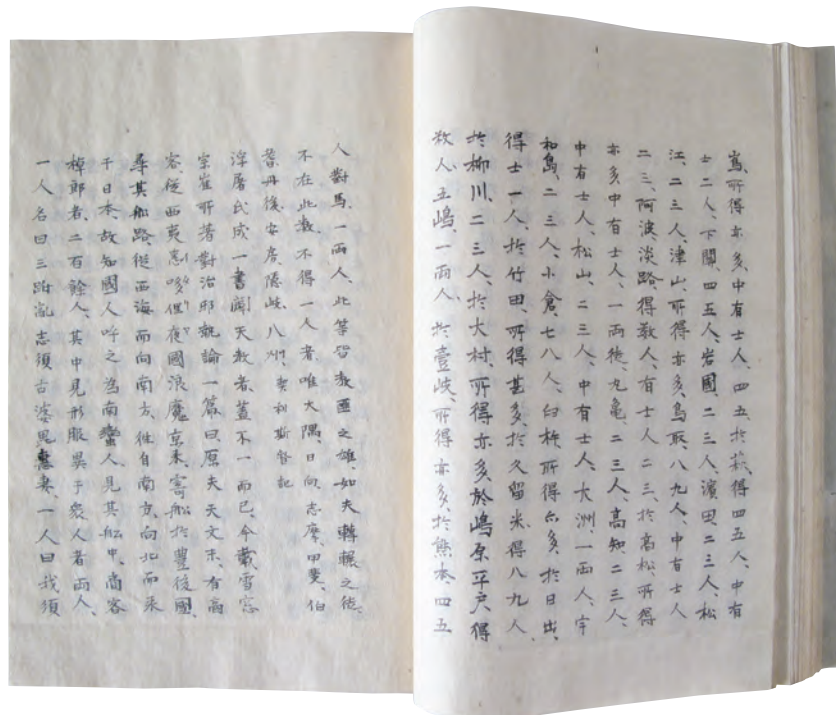 嶌、所得亦多、中有士人、四五、於萩、得四五人、中有
士二人、下關、四五人、岩國、二三人、濱田、二三人、松
江、二三人、津山、所得亦多、鳥取、八九人、中有士人
二三、阿波、淡路、得数人、有士人二三、於高松、所得
亦多、中有士人、一兩徒、丸亀、二三人、高知、二三人、
中有士人、松山、二三人、中有士人、大洲、一兩人、宇
和島、二三人、小倉七八人、臼杵、所得亦多、於日出、
得士一人、於竹田、所得甚多、於久留米、得八九人、
於柳川、二三人、於大村、所得亦多、於嶋原平戸、得
数人、五嶋、一兩人、於壹岐、所得亦多、於熊本、四五
人、對馬、一兩人、此等皆教匪之雄、如夫轉輾之徒、
不在此数、不得一人者、唯大隅、日向、志摩、甲斐、伯
耆、丹後、安房、隠岐、八州、契利斯督記
浮屠氏成一書、闢天教者、蓋不一而已、今載雪窓
宗崔所著對治邪執論一篇、曰、原夫天文末、有商
客、從西夷、伊夜國浪魔京来、寄船於豊後國、
尋其船路、從西海而向南方、徃自南京、向北而来
于日本、故知國人呼之為南蠻人、見其船中、商客
棹郎者、二百餘人、其中見形服異于衆人者兩人、
一人名曰三跗亂志須古婆、一人曰我須